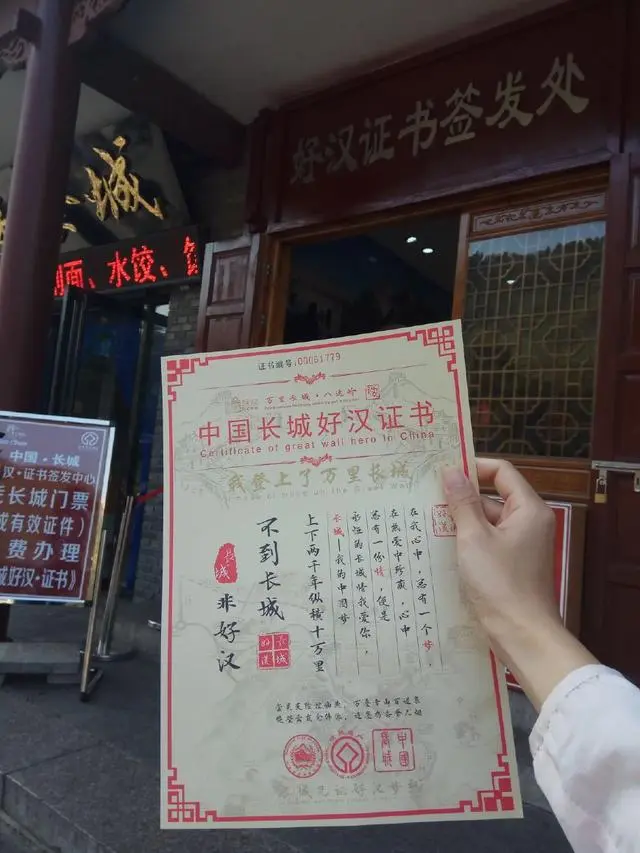 好汉证书签发处
城
削面、水饺、
中国·长城
汉·证书签发中心
长城门票
或有效证件）
费办理
城好汉·证书》
证书编号:00061779
万里长城·八达岭
中国长城好汉证书
Certificate of great wall hero in China
我登上了万里长城
在我心中,总有一个梦,
在热爱中珍藏,心中
总有一份情,便是
永恒的长城情我爱你,
长城—我的中国梦
上下两千年纵横十万里
不到长城
长城
好汉
长城
非好汉
中国
长城